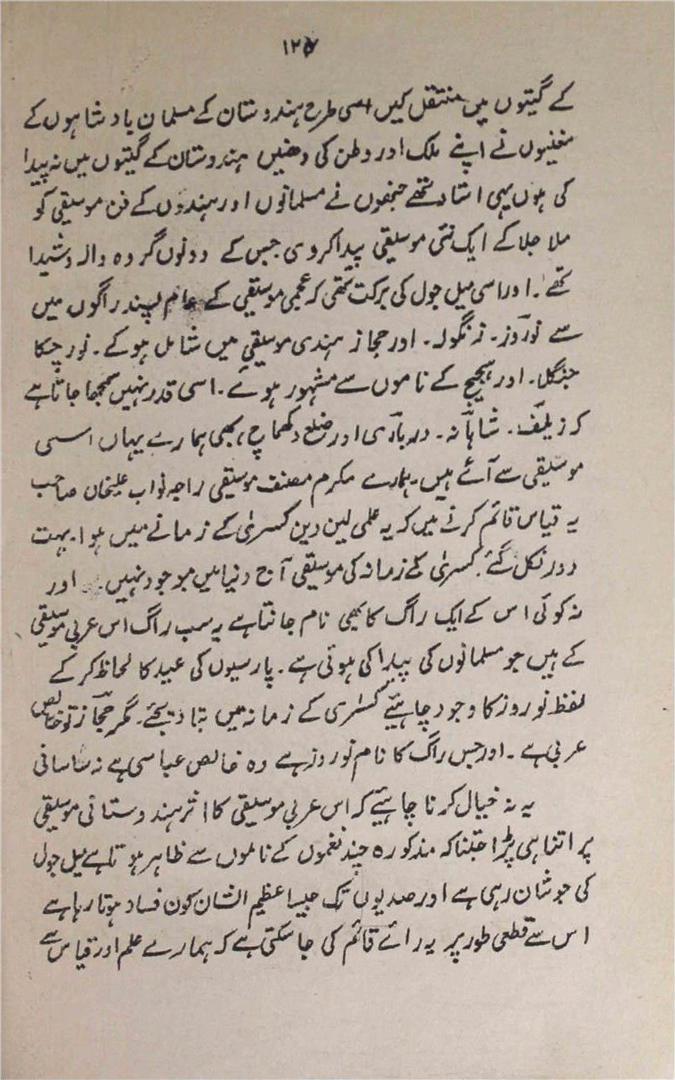 ۱۲۷
کے گیتوں میں منتقل کیں اسی طرح ہندوستان کے مسلمان بادشاہوں کے
مغنیوں نے اپنے ملک اور وطن کی دھنیں ہندوستان کے گیتوں میں نہ پیدا
کی ہوں یہی استاد تھے جنھوں نے مسلمانوں اور ہندوں کے فن موسیقی کو
ملا جلا کے ایک نئی موسیقی پیدا کر دی جس کے دونوں گروہ والہ و شیدا
تھے۔ اور اسی میل جول کی برکت تھی کہ عجمی موسیقی کے عام پسند راگوں میں
سے نوروز۔ زنگولہ۔ اور حجاز ہندی موسیقی میں شامل ہو کے۔ نور چکا
جنگلا۔ اور ہجیج کے ناموں سے مشہور ہوے۔ اسی قدر نہیں سمجھا جاتا ہے
کہ زیلف۔ شاہانہ۔ درباری اور ضلع دکھماچ، بھی ہمارے یہاں اسی
موسیقی سے آئے ہیں۔ ہمارے مکرم مصنف موسیقی راجہ نواب علیخان صاحب
یہ قیاس قائم کرنے میں کہ یہ علمی لین دین کسریٰ کے زمانے میں ہوا۔ بہت
دور نکل گئے۔ کسریٰ کے زمانہ کی موسیقی آج دنیا میں موجود نہیں۔ اور
نہ کوئی اس کے ایک راگ کا بھی نام جانتا ہے یہ سب راگ اس عربی موسیقی
کے ہیں جو مسلمانوں کی پیدا کی ہوئی ہے۔ پارسیوں کی عید کا لحاظ کر کے
لفظ نوروز کا وجود چاہئیے کسریٰ کے زمانہ میں بتا دیجئے۔ مگر حجاز تو خالص
عربی ہے۔ اور جس راگ کا نام نوروز ہے وہ خالص عباسی ہے نہ ساسانی
یہ نہ خیال کرنا چاہیئے کہ اس عربی موسیقی کا اثر ہندوستانی موسیقی
پر اتنا ہی پڑا جتنا کہ مذکورہ چند نغموں کے ناموں سے ظاہر ہوتا ہے میل جول
کی جو شان رہی ہے اور صدیوں تک جیسا عظیم الشان کون فساد ہوتا رہا ہے
اس سے قطعی طور پر یہ رائے قائم کی جا سکتی ہے کہ ہمارے علم اور قیاس سے